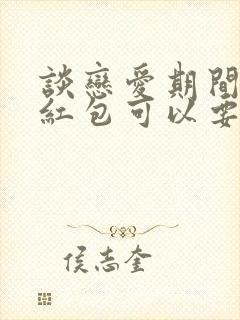 談戀愛期間
紅包可以要
侯志奎